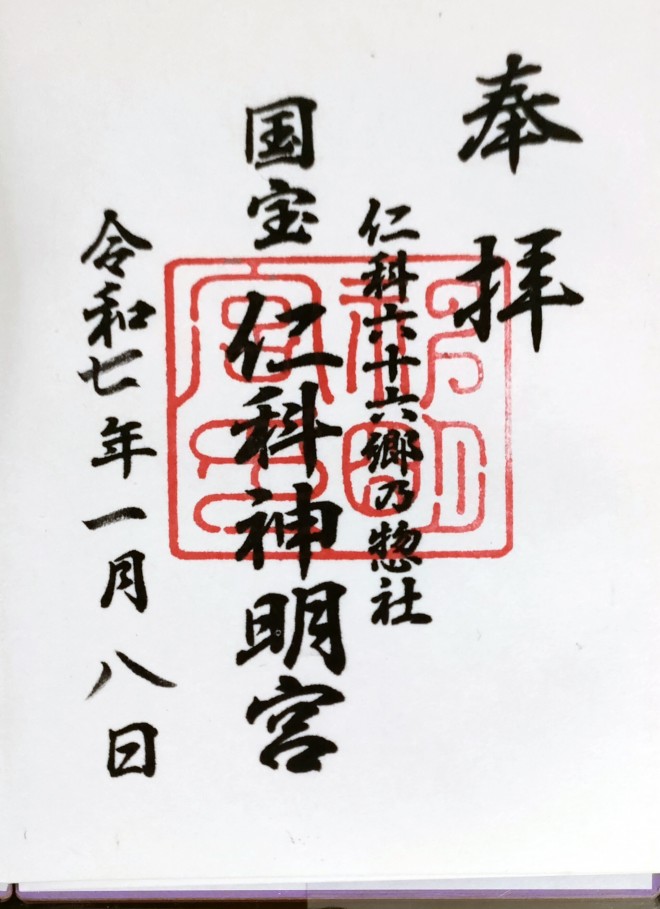 奉拝
仁科六十六郷乃惣社
国宝 仁科神明宮
令和七年一月八日